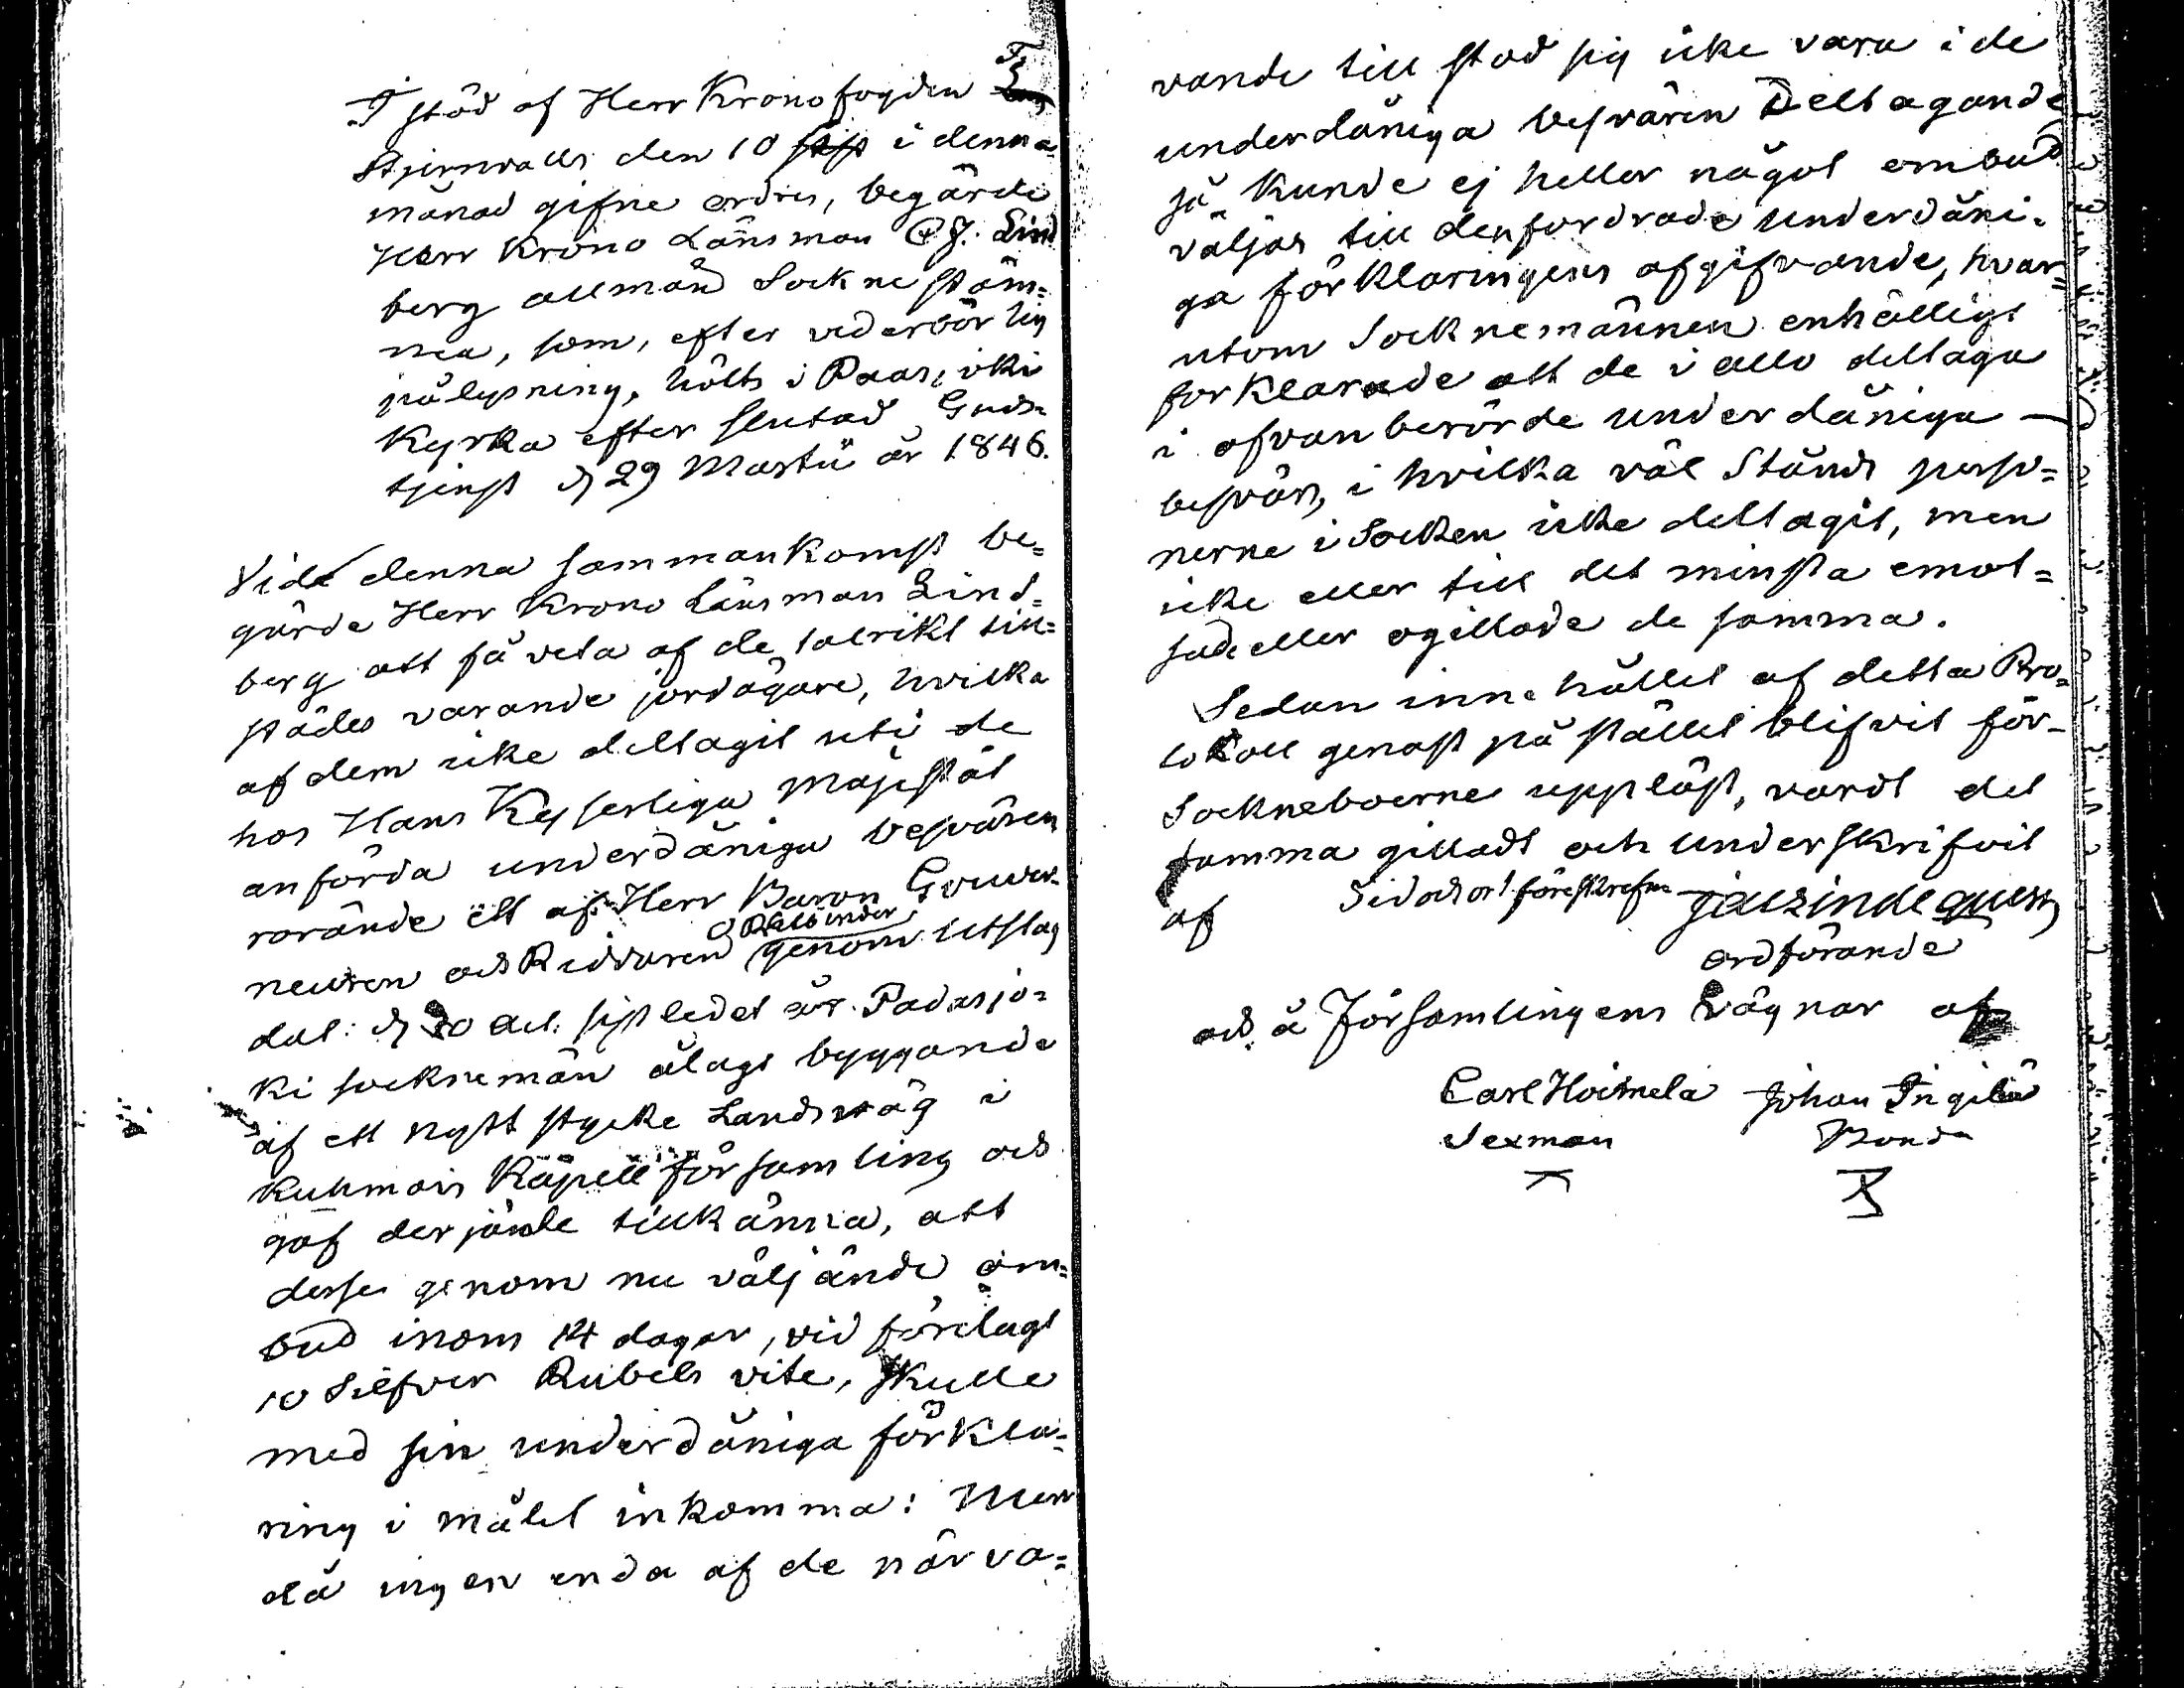 I stöd af Herr Kronofogden F.
Stjernvalls den 10 i denna
månad gifne ordres, begärde
Herr Krono Länsman C J. Lind
berg allmän Sockne stäm=
ma, som, efter vederbörlig
pålysning, hölts i Paasjoki
Kyrka efter slutad Guds=
tjenst d 29 Martii år 1846.
Vid denna sammankomst be=
gärde Herr Krono Länsman Lind=
berg att få veta af de talrikt till=
städes varande jordägare, hvilka
af dem icke deltagit uti de
hos Hans Kejserliga Majestät
anförda underdåniga besvären
rörande ett af Herr Baron Gouver=
neuren och Riddaren genom utslag
dat: d 20 Oct. sistledet år Padasjo=
ki socknemän ålagt byggande
af ett nytt stycke Landsväg i
Kuhmois Kapell församling och
gaf derjämte tillkänna, att
desse genom nu väljande om=
bud inom 14 dagar, vid förelagt
10 Silfver Rubels vite, skulle
med sin underdåniga förkla=
ring i målet inkomma: Men
då ingen enda af de närva=
rande till stod sig icke vara i de
underdåniga besvären Deltagande
så kunde ej heller något ombud
väljas till den fordrade underdåni=
ga förklaringens afgifvande, hvar=
utom Socknemännen enhälligt
forklarade att de i allo deltaga
i ofvanberörde underdåniga
besvär, i hvilka väl Stånds perso=
nerne i Socken icke deltagit, men
icke eller till det minsta emot=
sade eller ogillade de samma.
Sedan innehållet af detta Pro=
tokoll genast på stället blifvit för
Socknebоerne uppläst, vardt det
samma gilladt och underskrifvit
af Tid och ort föreskrefne
ordförande
och å Församlingens vägnar af
Carl Hoimela Johan Ingilä
Sexman Bonde